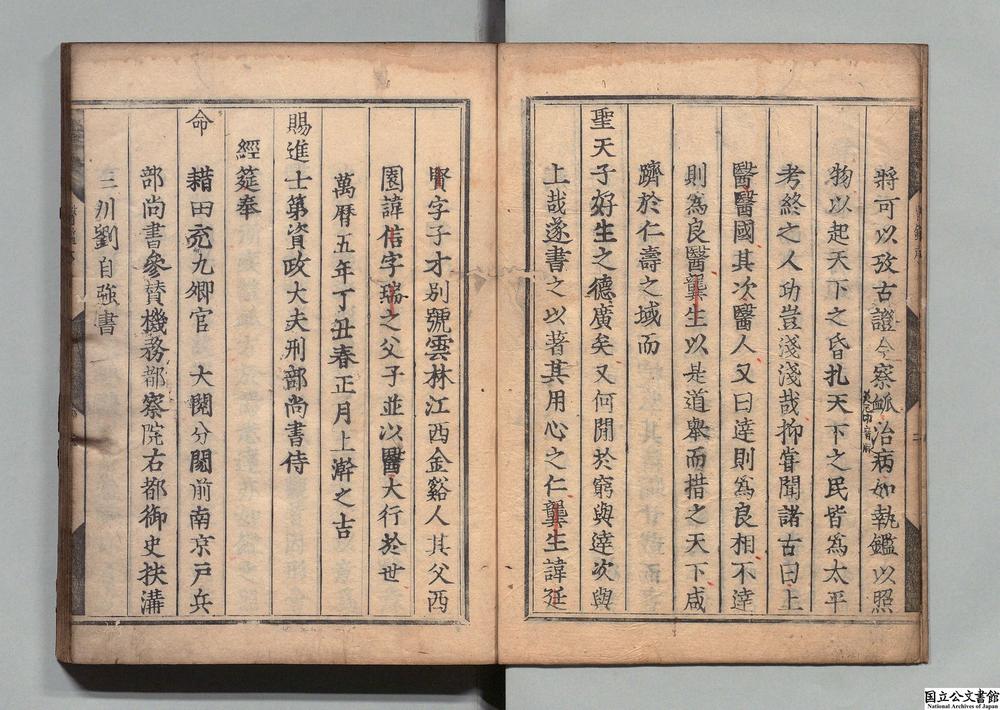 將可以攷古證今察䘑治病如執鑑以照
物以起天下之昏扎天下之民皆為太平
考終之人功豈淺淺哉抑嘗聞諸古曰上
醫醫國其次醫人又曰達則為良相不達
則為良醫龔生以是道舉而措之天下咸
躋於仁壽之域而
聖天子好生之德廣矣又何閒於窮與達次與
上哉遂書之以著其用心之仁龔生諱廷
賢字子才別號雲林江西金谿人其父西
園諱信字瑞之父子並以醫大行於世
萬曆五年丁丑春正月上澣之吉
賜進士第資政大夫刑部尚書侍
經筵奉
命耤田充九卿官大閱分閫前南京戶兵
部尚書參贊機務都察院右都御史扶溝
三川劉自強書
国立公文書館
National Archives of Japan